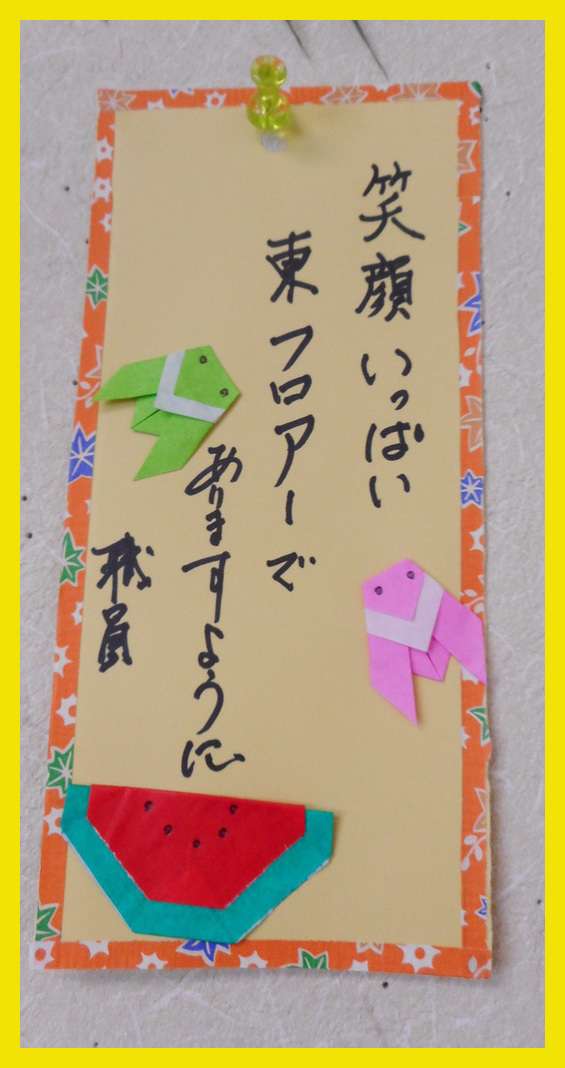 笑顔いっぱい
東フロアーで
ありますように
職員